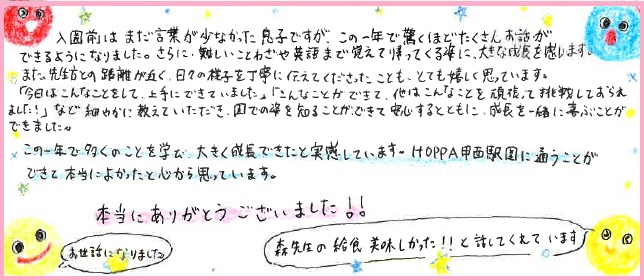 入園前は まだ言葉が少なかった息子ですが、この一年で驚くほどたくさんお話が
できるようになりました。さらに、難しいことわざや英語まで覚えて帰ってくる姿に、大きな成長を感じます。
また、先生方との距離が近く、日々の様子を丁寧に伝えてくださったことも、とても嬉しく思っています。
「今日はこんなことをして、上手にできていました」「こんなことができて、他はこんなことを頑張って挑戦しておられ
ました！」など細やかに教えていただき、園での姿を知ることができて安心するとともに、成長を一緒に喜ぶことが
できました。
この一年で多くのことを学び、大きく成長できたと実感しています。HOPPA甲西駅園に通うことが
できて本当によかったと心から思っています。
本当にありがとうございました!!
お世話になりました
森先生の給食美味しかった!!と話してくれています